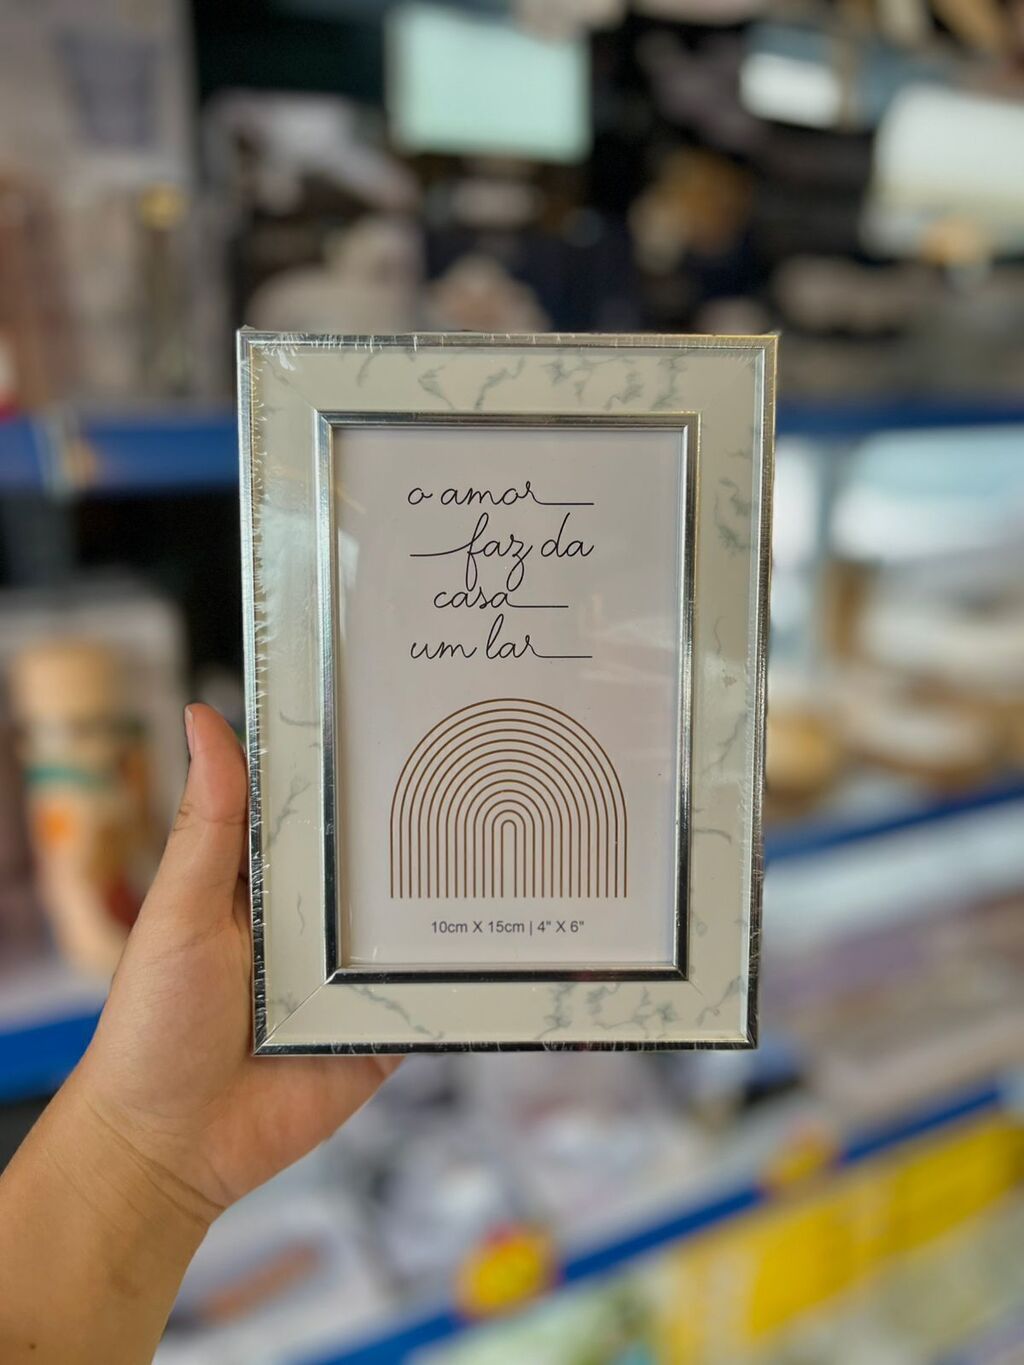 o amor
faz da
casa
um lar
10cm X 15cm | 4" X 6"